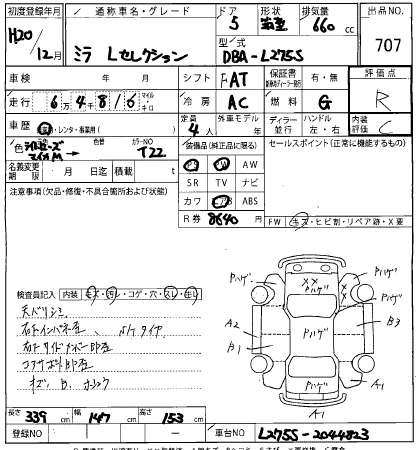 初度登録年月 通称車名・グレード ドア 形状 排気量 出品NO.
H20/12月 ミラ Lセレクション 5 箱型 660cc 707
型式 DBA-L275S
車検 年 月 シフト FAT 保証書 有・無 評価点 R
走行 6万4千816 マイル・キロ 冷房 AC 燃料 G
車歴 自家・レンタ・事業用( ) 定員 4人 外車モデル年 ディーラー並行 ハンドル 左・右 内装評価 C
色 マイカM 色替 カラーNO T22 装備品(純正品に限る) セールスポイント(正常に機能するもの)
PS PW AW
名義変更期限 月 日迄 積載 t SR TV ナビ
注意事項(欠品・修復・不具合箇所および状態) カワ エアB ABS
R券 8640円
FW キズ・ヒビ割・リペア跡・X要
検査員記入 内装 キズ・汚レ・コゲ・穴・スレ・ヨレ
天バリシミ
右サイドメンバー凹歪
Pハゲ XX Pハゲ Pハゲ
A2 Pハゲ B3
B1
Pハゲ Pハゲ A1
A1
長さ 339cm 幅 147cm 高さ 153cm
登録NO 車台NO L275S-2044823